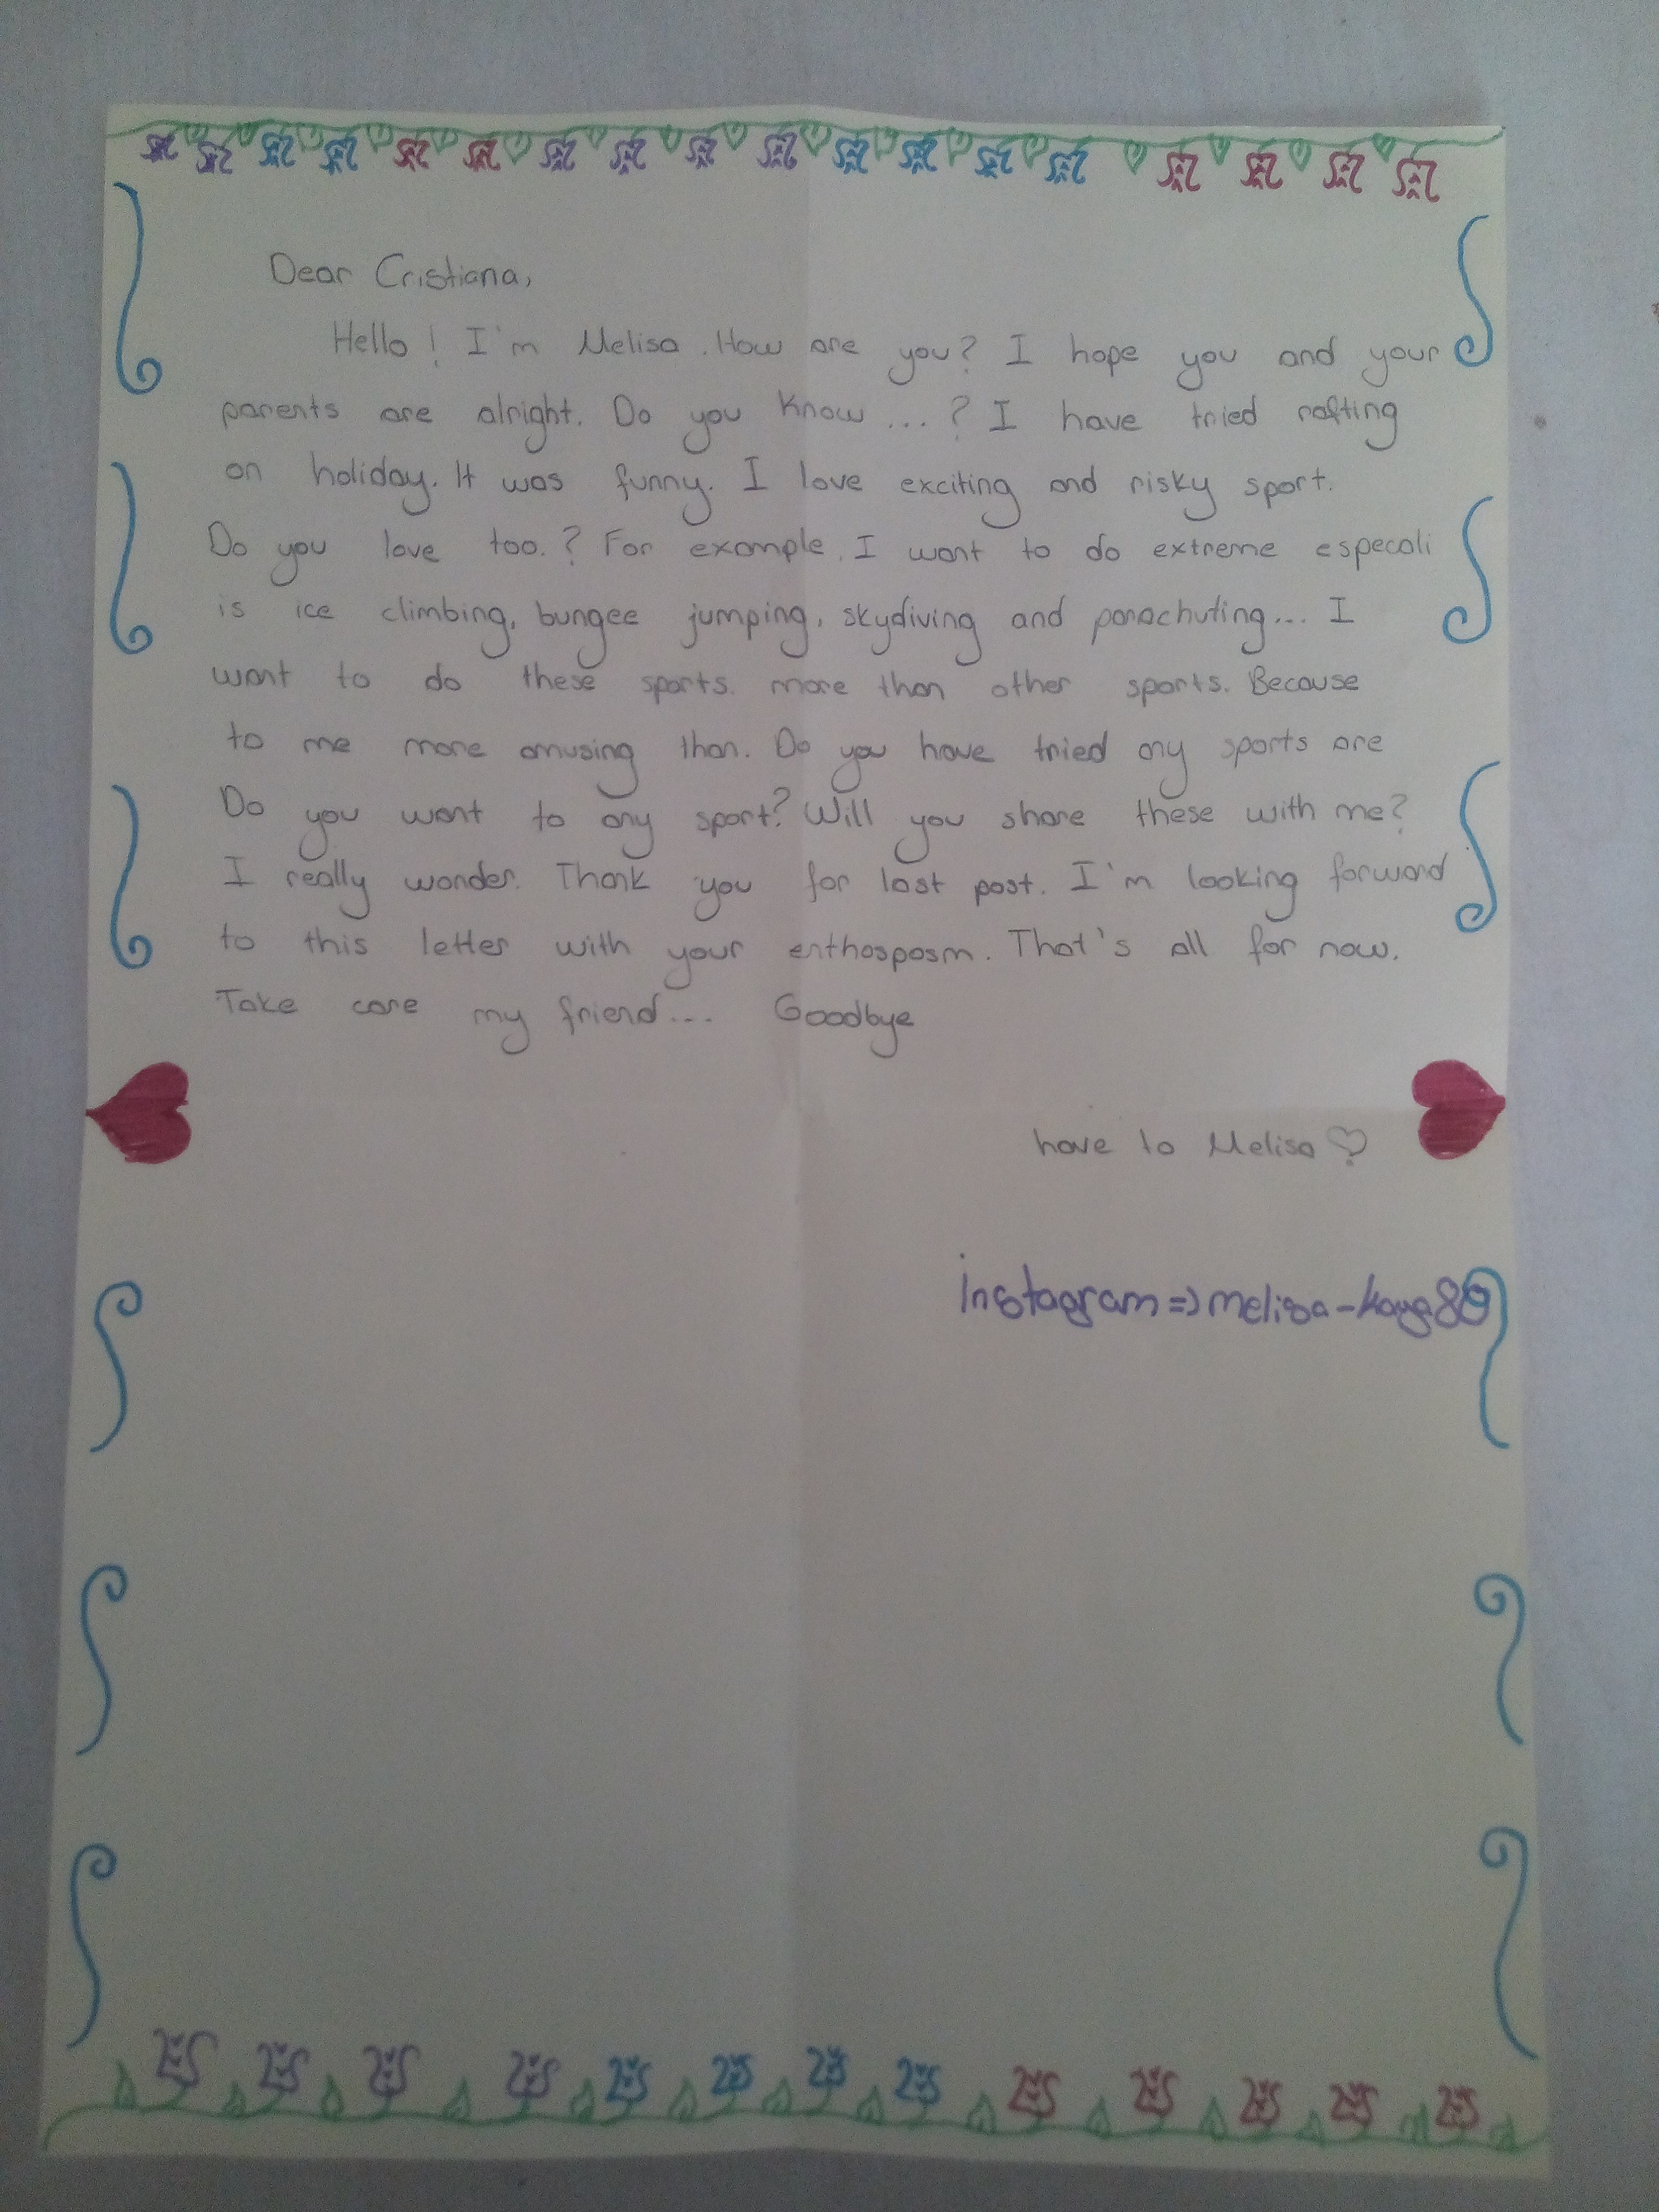 Dear Cristiana,
Hello! I'm Melisa. How are you? I hope you and your
parents are alright. Do you know...? I have tried rafting
on holiday. It was funny. I love exciting and risky sport.
Do you love too.? For example, I want to do extreme especali
is ice climbing, bungee jumping, skydiving and parachuting... I
want to do these sports. more than other sports. Because
to me more amusing than. Do you have tried any sports are
Do you want to any sport? Will you share these with me?
I really wonder. Thank you for last post. I'm looking forward
to this letter with your enthosposm. That's all for now.
Take care my friend... Goodbye
have to Melisa ♡
instagram=>melisa-kaya80